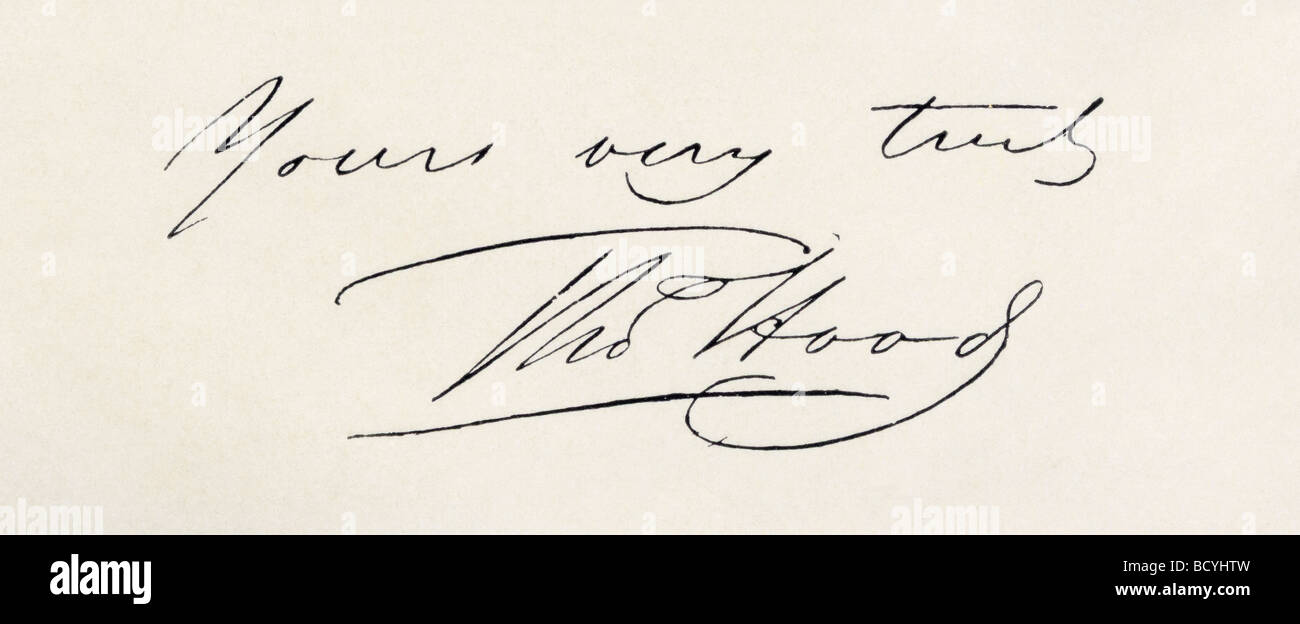 Yours very truly
Thos Hood
alamy
Image ID: BCYHTW
www.alamy.com